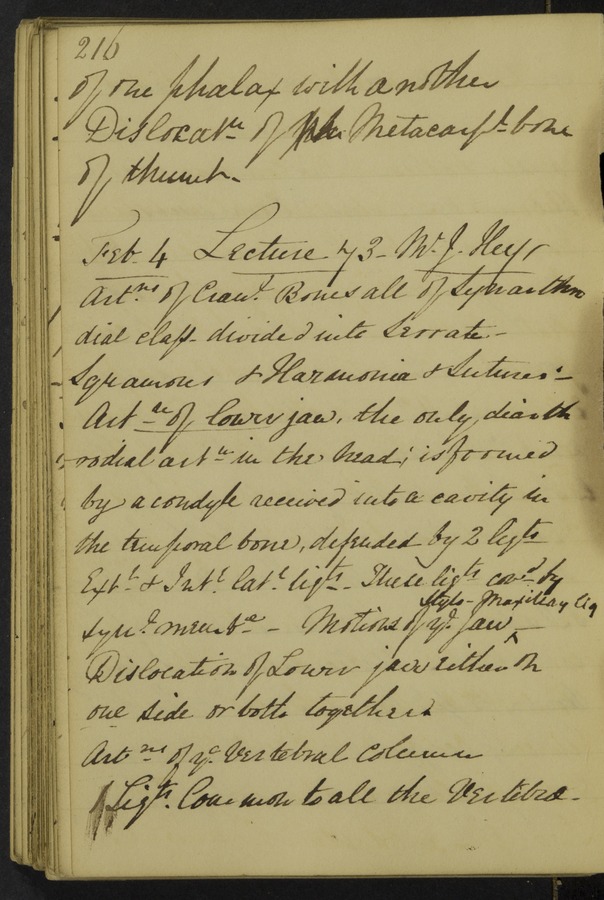 216
of one phalax with another
Dislocatn of Metacarpl bone
of thumb -
Feb. 4 Lecture 73 - Mr J. Hey
Artns of Cranl Bones all of Synarthro
dial class divided into Serrate -
Sqramous & Harmonia & Sutures -
Artn of lower jaw, the only diarth
rodial artn in the head; is formed
by a condyle received into a cavity in
the temporal bone, defended by 2 ligts
Extl & Intl latl ligts - These ligts covd by
Stylo - Maxillary lig
synl membe - Motions of ye jaw -
Dislocation of Lower jaw either on
one side or both together
Artns of ye Vertebral Column
Ligts Common to all the Vertebræ -